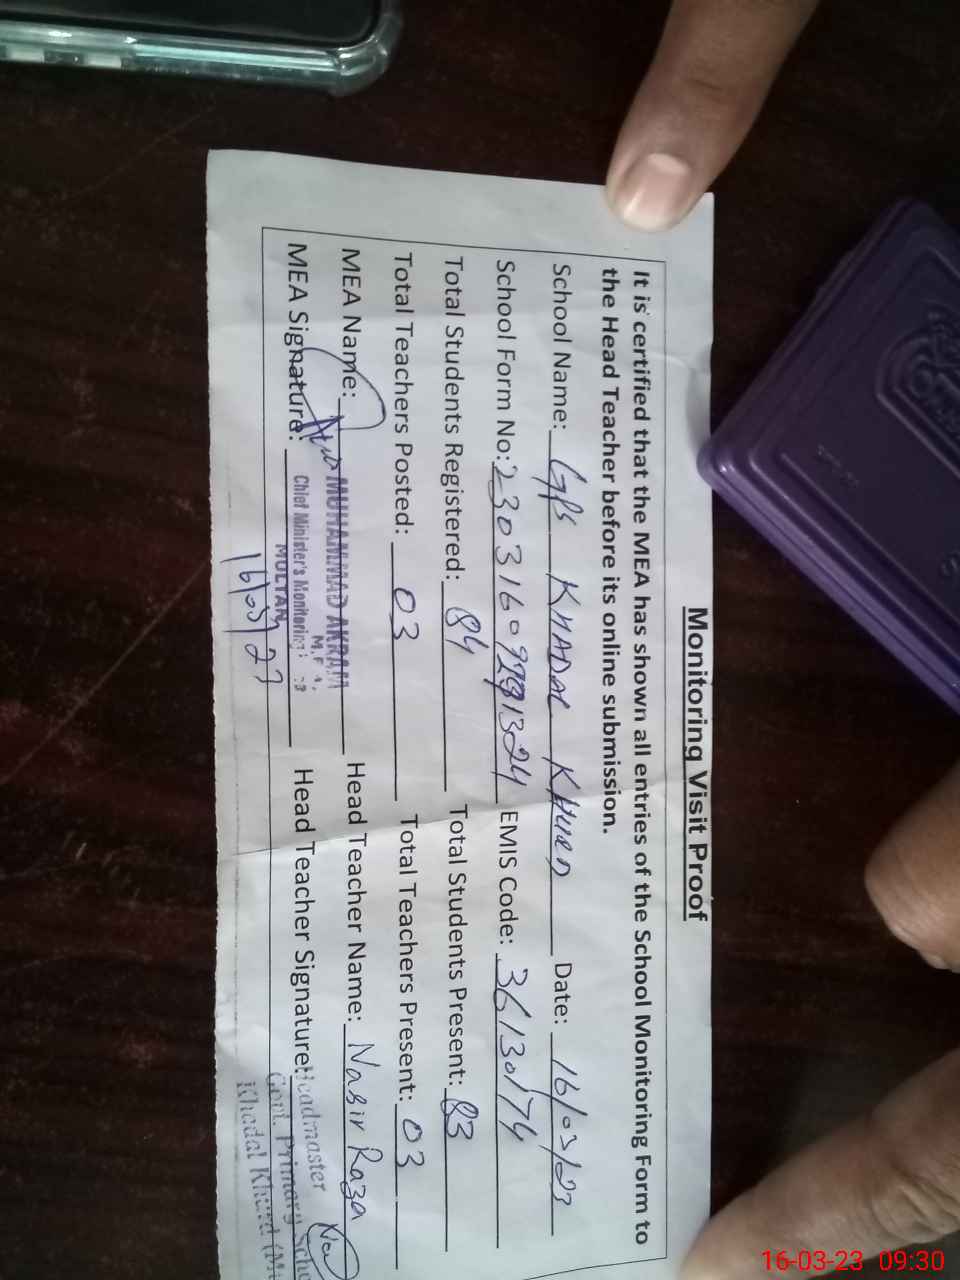 Monitoring Visit Proof
It is certified that the MEA has shown all entries of the School Monitoring Form to
the Head Teacher before its online submission.
School Name: GPS KHADAL KHURD Date: 16/03/23
School Form No: EMIS Code: 36130174
Total Students Registered: 84 Total Students Present: 83
Total Teachers Posted: 03 Total Teachers Present: 03
MEA Name: MUHAMMAD AKRAM Head Teacher Name: Nasir Raza
MEA Signature: Chief Minister's Monitoring Head Teacher Signature: Headmaster
MULTAN Govt. Primary
16/03/23 Khadal Khurd
16-03-23 09:30